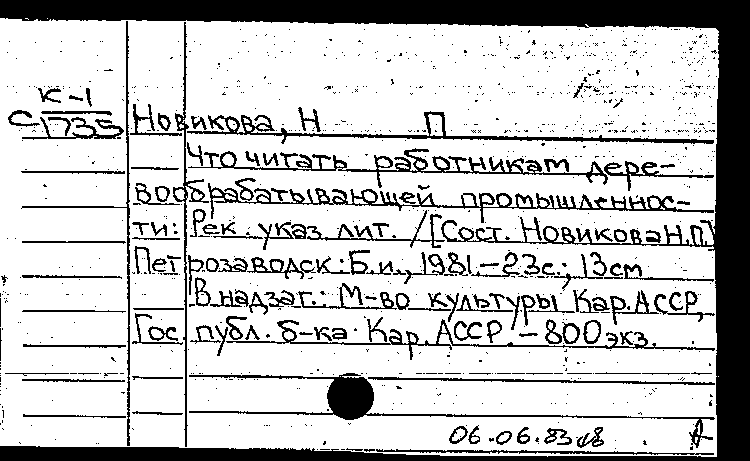 К-1
С-1735
Новикова, Н П
Что читать работникам дере-
вообрабатывающей промышленнос-
ти: Рек. указ. лит. /[Сост. Новикова Н.П.]
Петрозаводск: Б.и., 1981.-23с.; 13см
В надзаг.: М-во культуры Кар.АССР,
Гос. публ. б-ка Кар. АССР. -800экз.
06.06.83